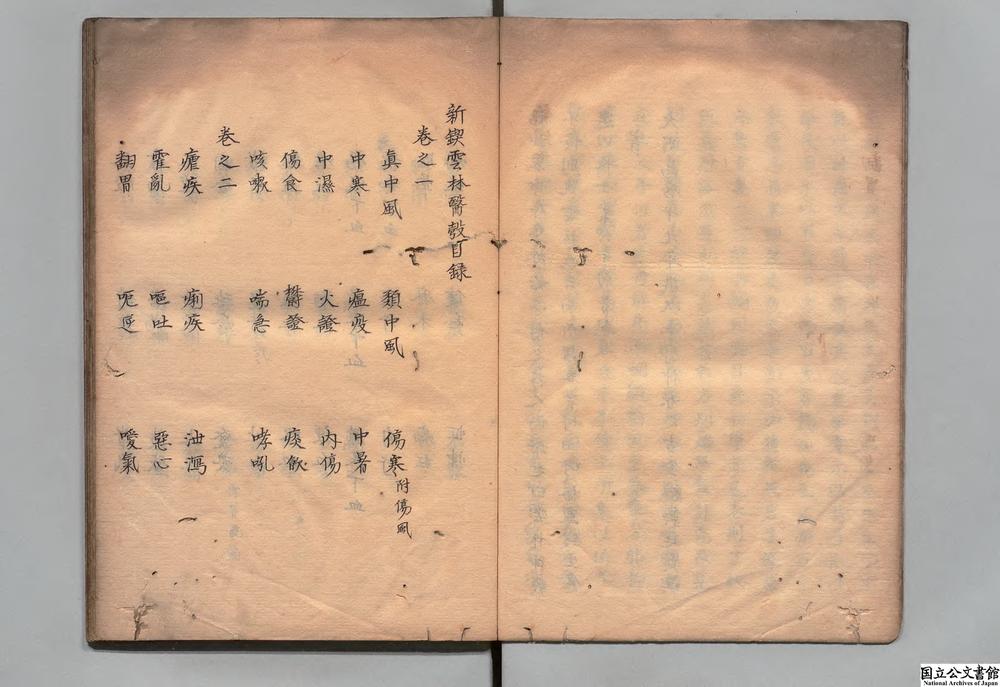 新鍥雲林醫彀目録
卷之一
眞中風 類中風 傷寒附傷風
中寒 瘟疫 中暑
中濕 火證 内傷
傷食 欝證 痰飲
咳嗽 喘急 哮吼
卷之二
瘧疾 痢疾 泄瀉
霍亂 嘔吐 惡心
翻胃 呃逆 噯氣
国立公文書館
National Archives of Japan